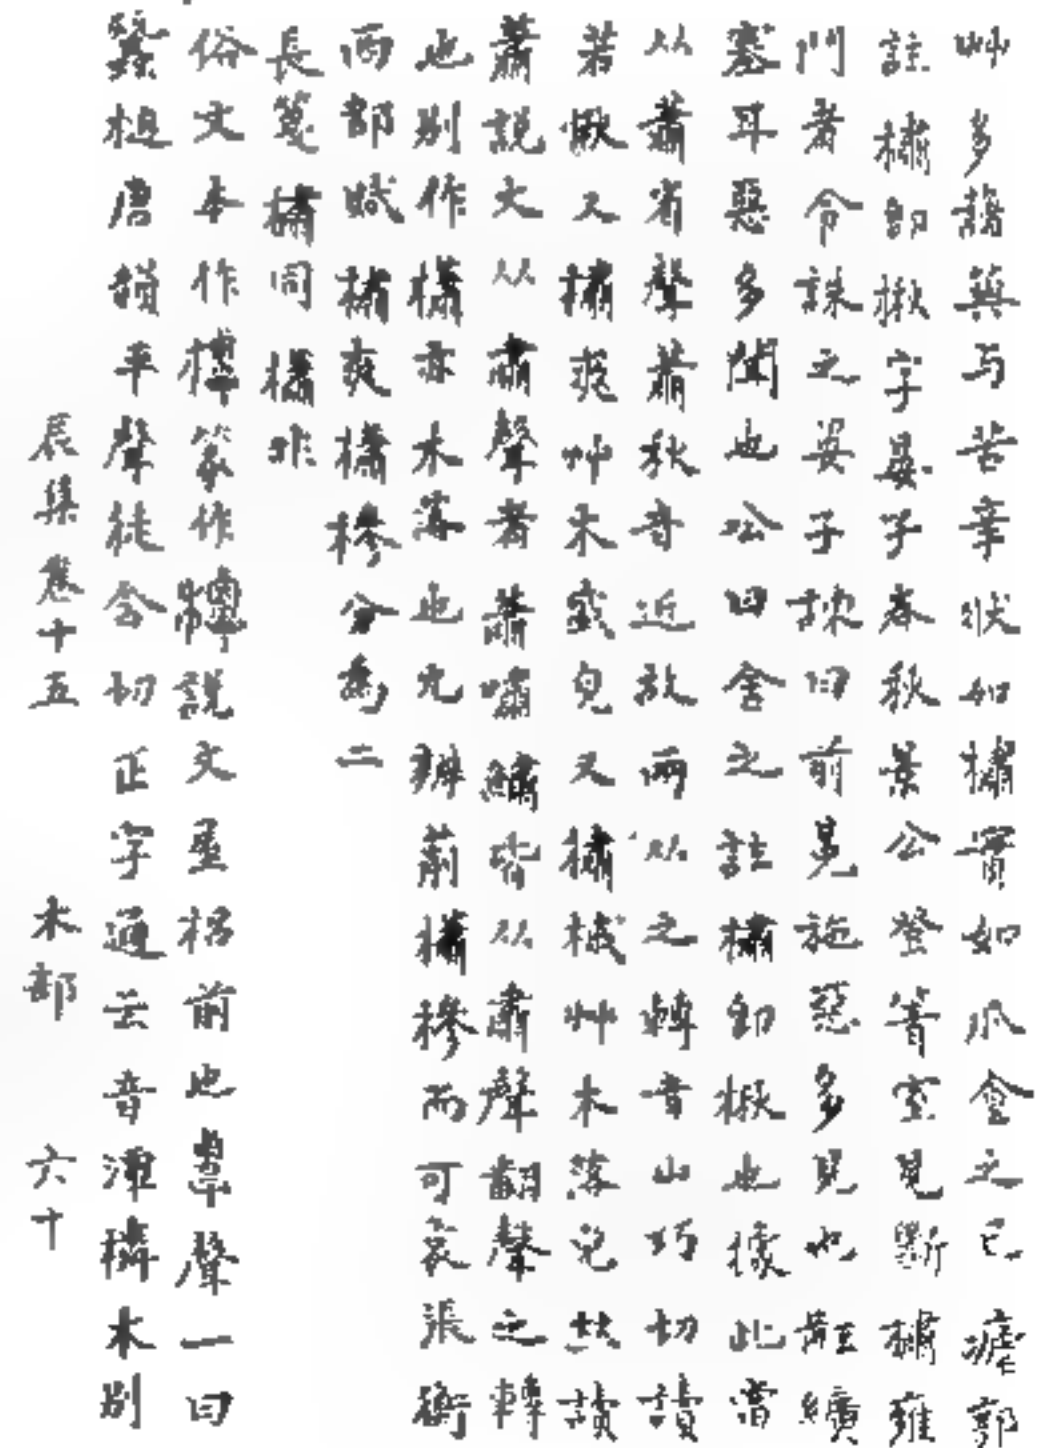 艸多橚䓪与苦辛狀如橚實如瓜食之已癘郭
註橚卽楸字晏子春秋景公登箐室見斷橚雍
門者令誅之晏子諫曰前冕施惡多見也黈纊
塞耳惡多聞也公曰舍之註橚卽楸也據此當
从蕭省聲蕭秋音近故兩从之轉音山巧切讀
若橚又橚爽艸木盛皃又橚槭艸木落皃𠀤讀
蕭說文从肅聲者蕭嘯鱐皆从肅聲翻聲之轉
也別作櫹亦木落也九辨萷櫹槮而可哀張衡
西都賦橚爽櫹槮分爲二
長箋橚同櫹非
俗文本作橝篆作說文屋梠前也覃聲一曰
蠶槌唐韻平聲徒含切正字通云音潭橉木別
辰集卷十五 木部 六十